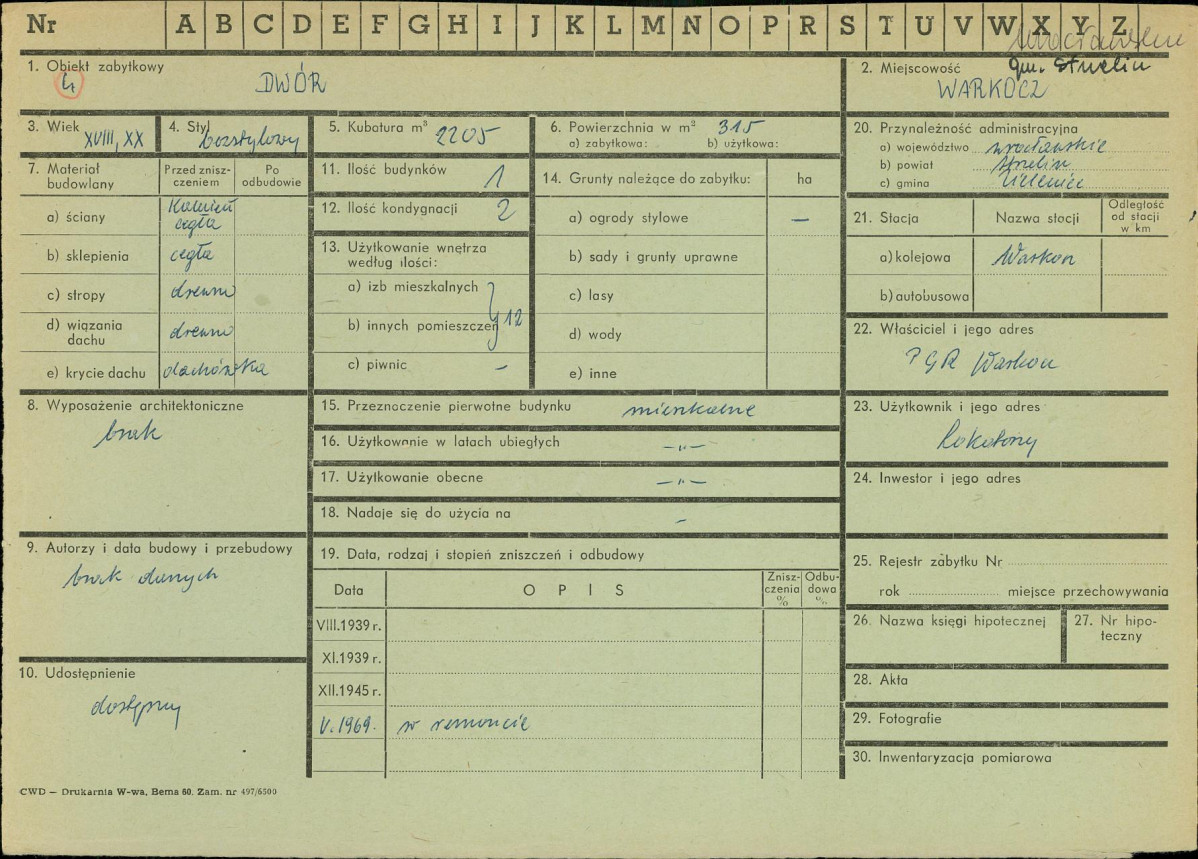 Nr A B C D E F G H I J K L M N O P R S T U V W X Y Z
1. Obiekt zabytkowy
4
DWÓR
2. Miejscowość
gm. Strzelin
WARKOCZ
3. Wiek
XVIII, XX
4. Styl
bezstylowy
5. Kubatura m³ 2205
6. Powierzchnia w m² 315
a) zabytkowa: b) użytkowa:
20. Przynależność administracyjna
a) województwo wrocławskie
b) powiat Strzelin
c) gmina
7. Materiał budowlany
Przed zniszczeniem
Po odbudowie
a) ściany kamień cegła
b) sklepienia cegła
c) stropy drewno
d) wiązania dachu drewno
e) krycie dachu dachówka
11. Ilość budynków 1
12. Ilość kondygnacji 2
13. Użytkowanie wnętrza według ilości:
a) izb mieszkalnych
b) innych pomieszczeń 12
c) piwnic –
14. Grunty należące do zabytku: ha
a) ogrody stylowe –
b) sady i grunty uprawne
c) lasy
d) wody
e) inne
21. Stacja Nazwa stacji Odległość od stacji w km
a) kolejowa Warkocz
b) autobusowa
22. Właściciel i jego adres
PGR Warkocz
8. Wyposażenie architektoniczne
brak
15. Przeznoczenie pierwotne budynku mieszkalne
16. Użytkowanie w latach ubiegłych –„–
17. Użytkowanie obecne –„–
18. Nadaje się do użycia na –
23. Użytkownik i jego adres
lokatorzy
24. Inwestor i jego adres
9. Autorzy i data budowy i przebudowy
brak danych
19. Data, rodzaj i stopień zniszczeń i odbudowy
Data OPIS Zniszczenia % Odbudowa %
VIII.1939 r.
XI.1939 r.
XII.1945 r.
V.1969. w remoncie
10. Udostępnienie
dostępny
25. Rejestr zabytku Nr
rok miejsce przechowywania
26. Nazwa księgi hipotecznej
27. Nr hipoteczny
28. Akta
29. Fotografie
30. Inwentaryzacja pomiarowa
CWD — Drukarnia W-wa, Bema 60. Zam. nr 497/6500